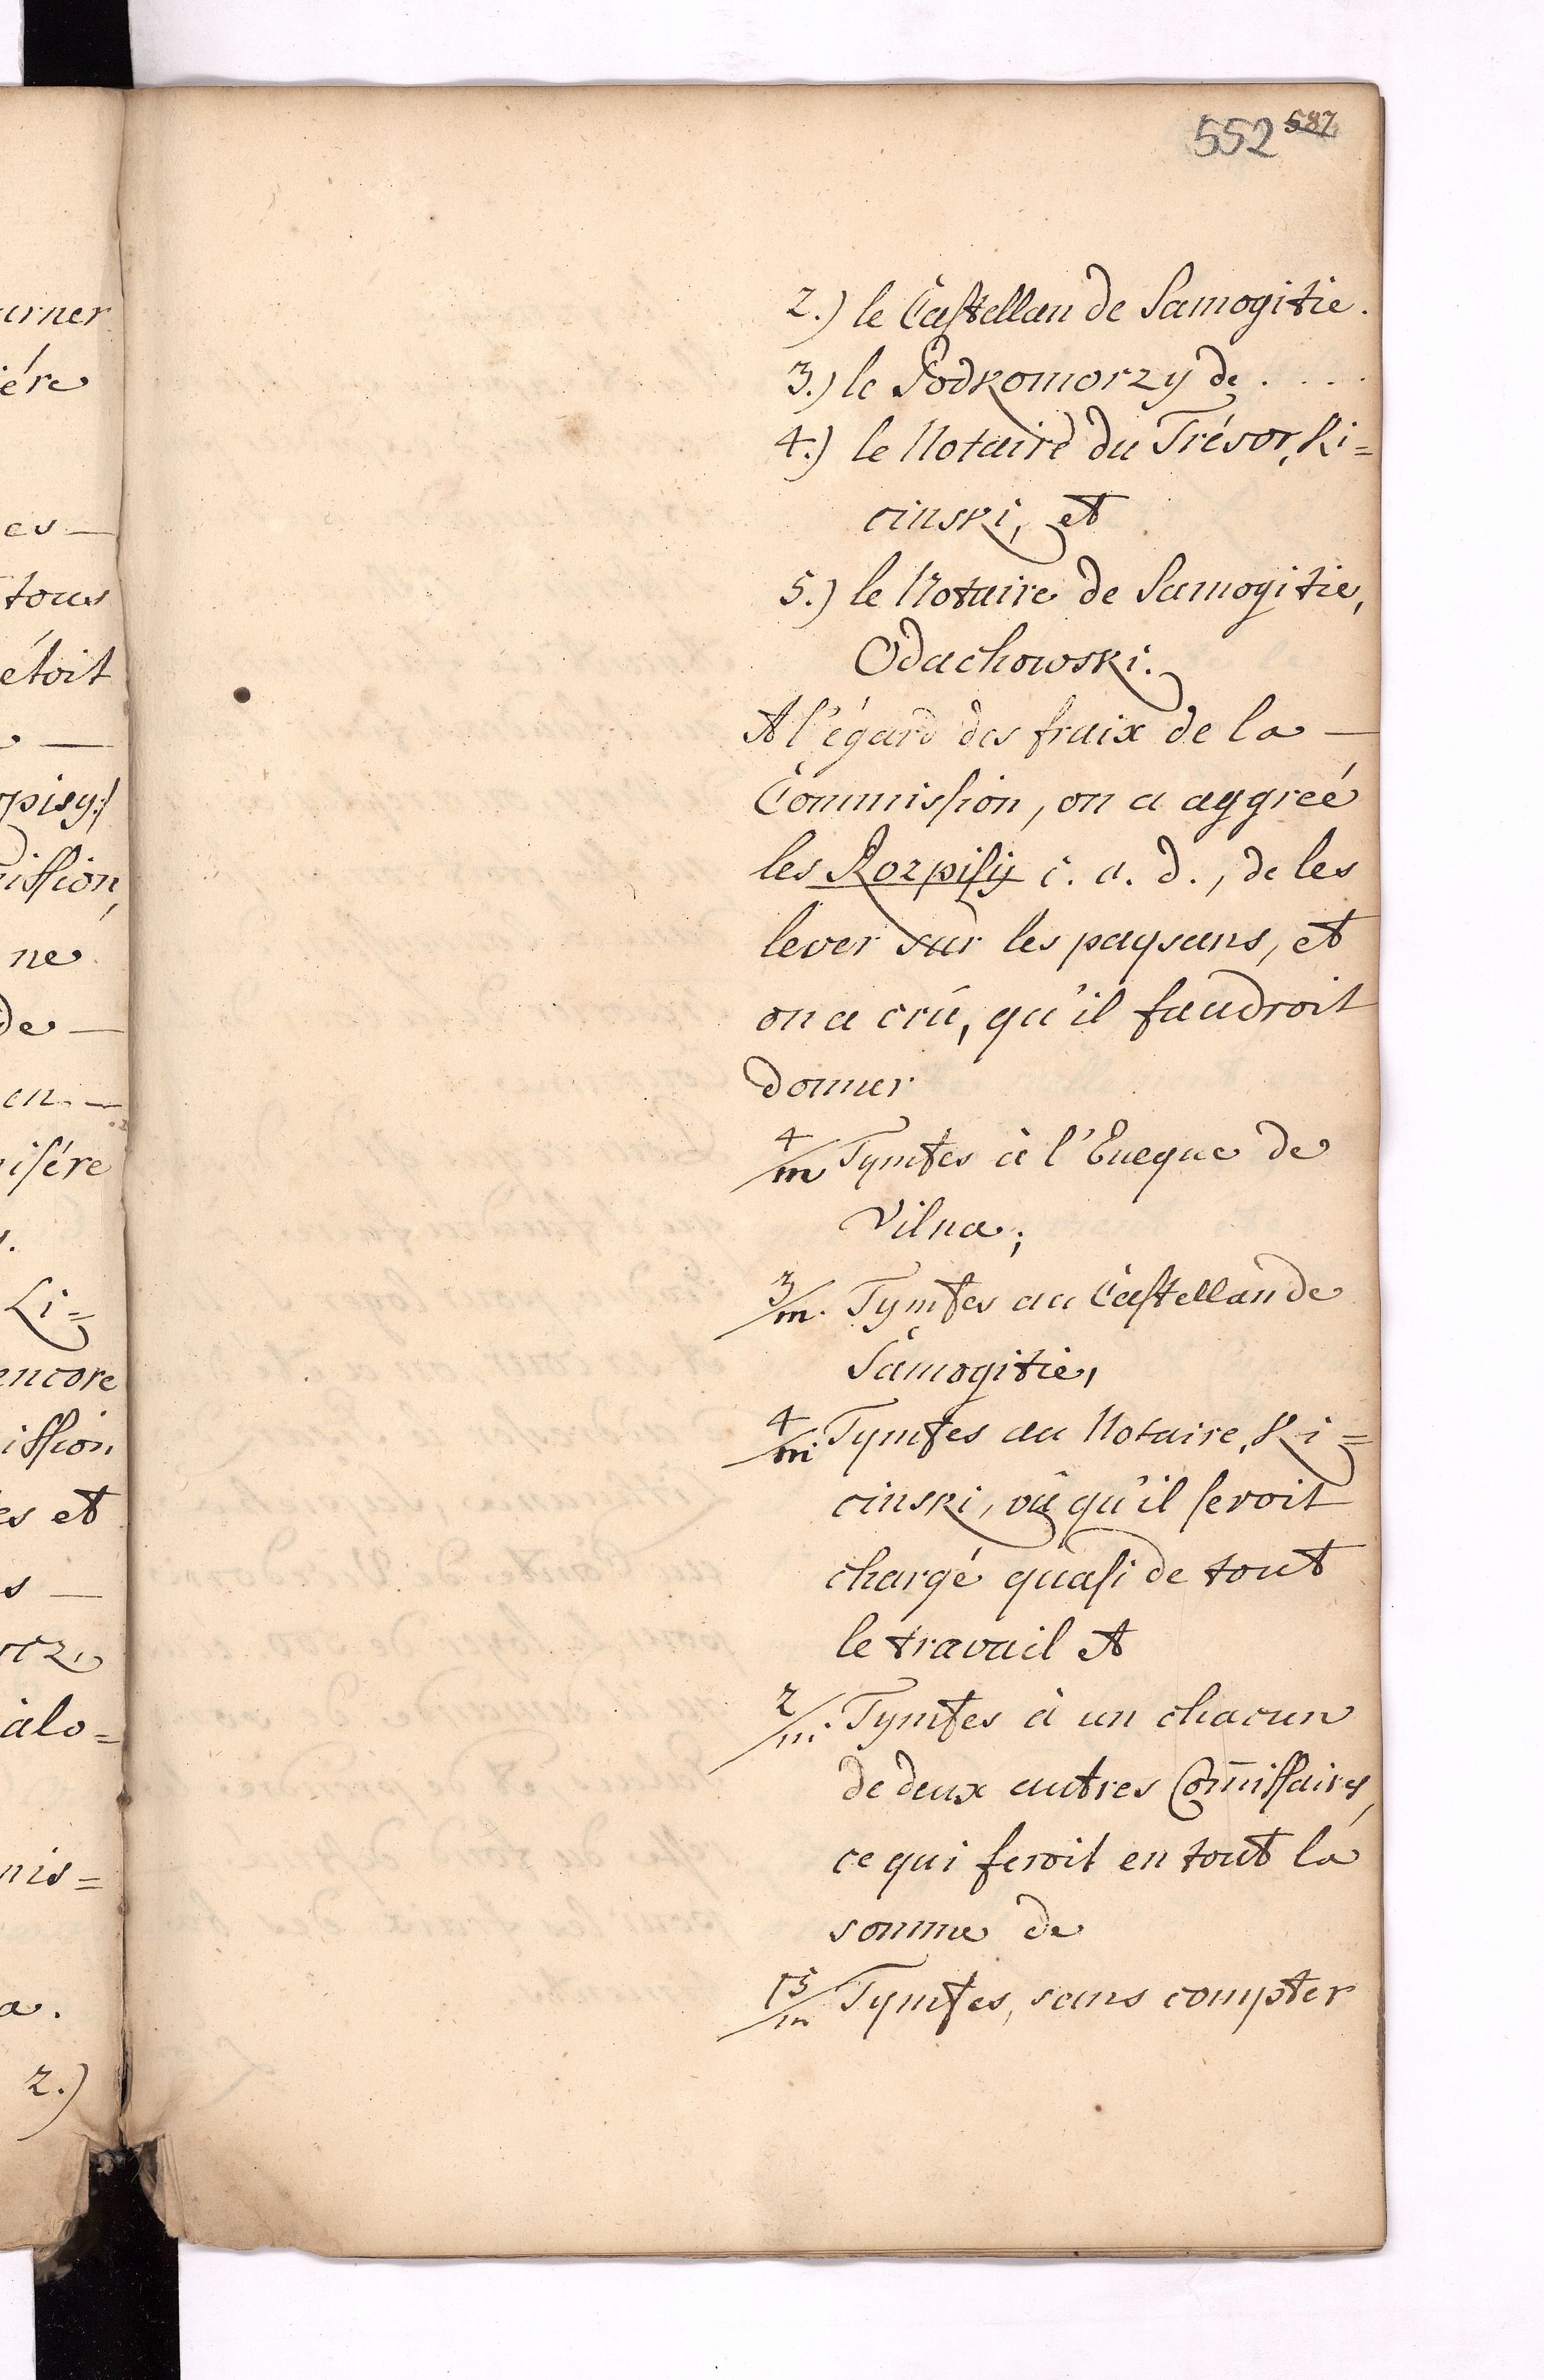 552 587
2.) le Castellan de Samogitie.
3.) le Podkomorzy de . . . .
4.) le Notaire du Trésor, Ki=
cinski, et
5.) le Notaire de Samogitie,
Odachowski.
A l'égard des fraix de la —
Commission, on a aggreé
les Rozpisy c. a. d., de les
lever sur les paysans, et
on a crû, qu'il faudroit
donner
4/m Tymfes à l'Eueque de
Vilna;
3/m. Tymfes au Castellan de
Samogitie,
4/m Tymfes au Notaire, Ki=
cinski, vû qu'il seroit
chargé quasi de tout
le travail et
2/m. Tymfes à un chacun
de deux autres Com̄issaires,
ce qui feroit en tout la
somme de
15/m Tymfes, sans compter
urner
iére
es —
tous
étoit
—
opisy:/
ission,
ne
de —
en. —
isére
Li=
encore
ission
es et
s —
alo=
mis=
a.
2.)